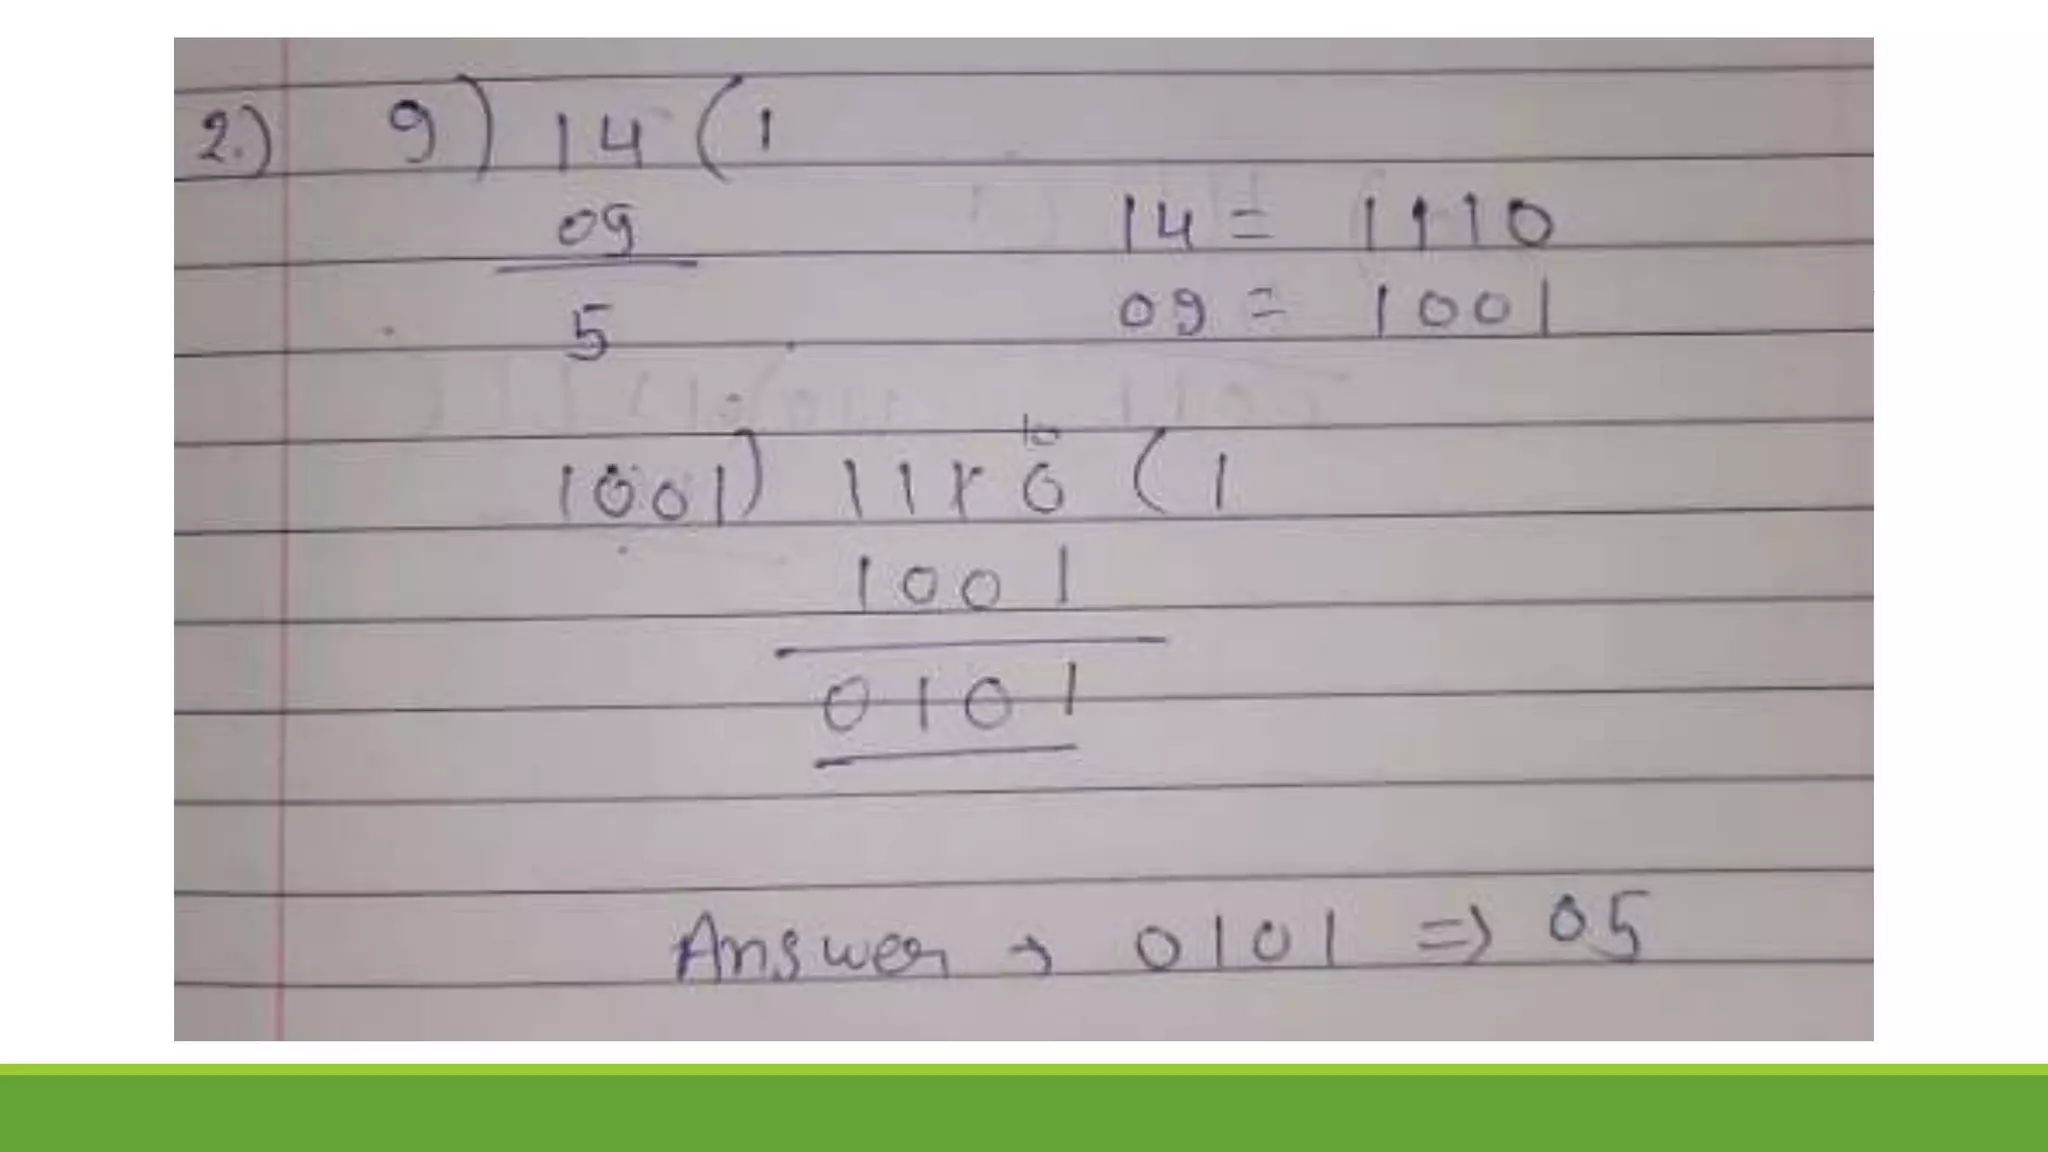 2.) 9) 14 (1
09
5
14 = 1110
09 = 1001
10
1001) 1110 (1
1001
0101
Answer → 0101 => 05